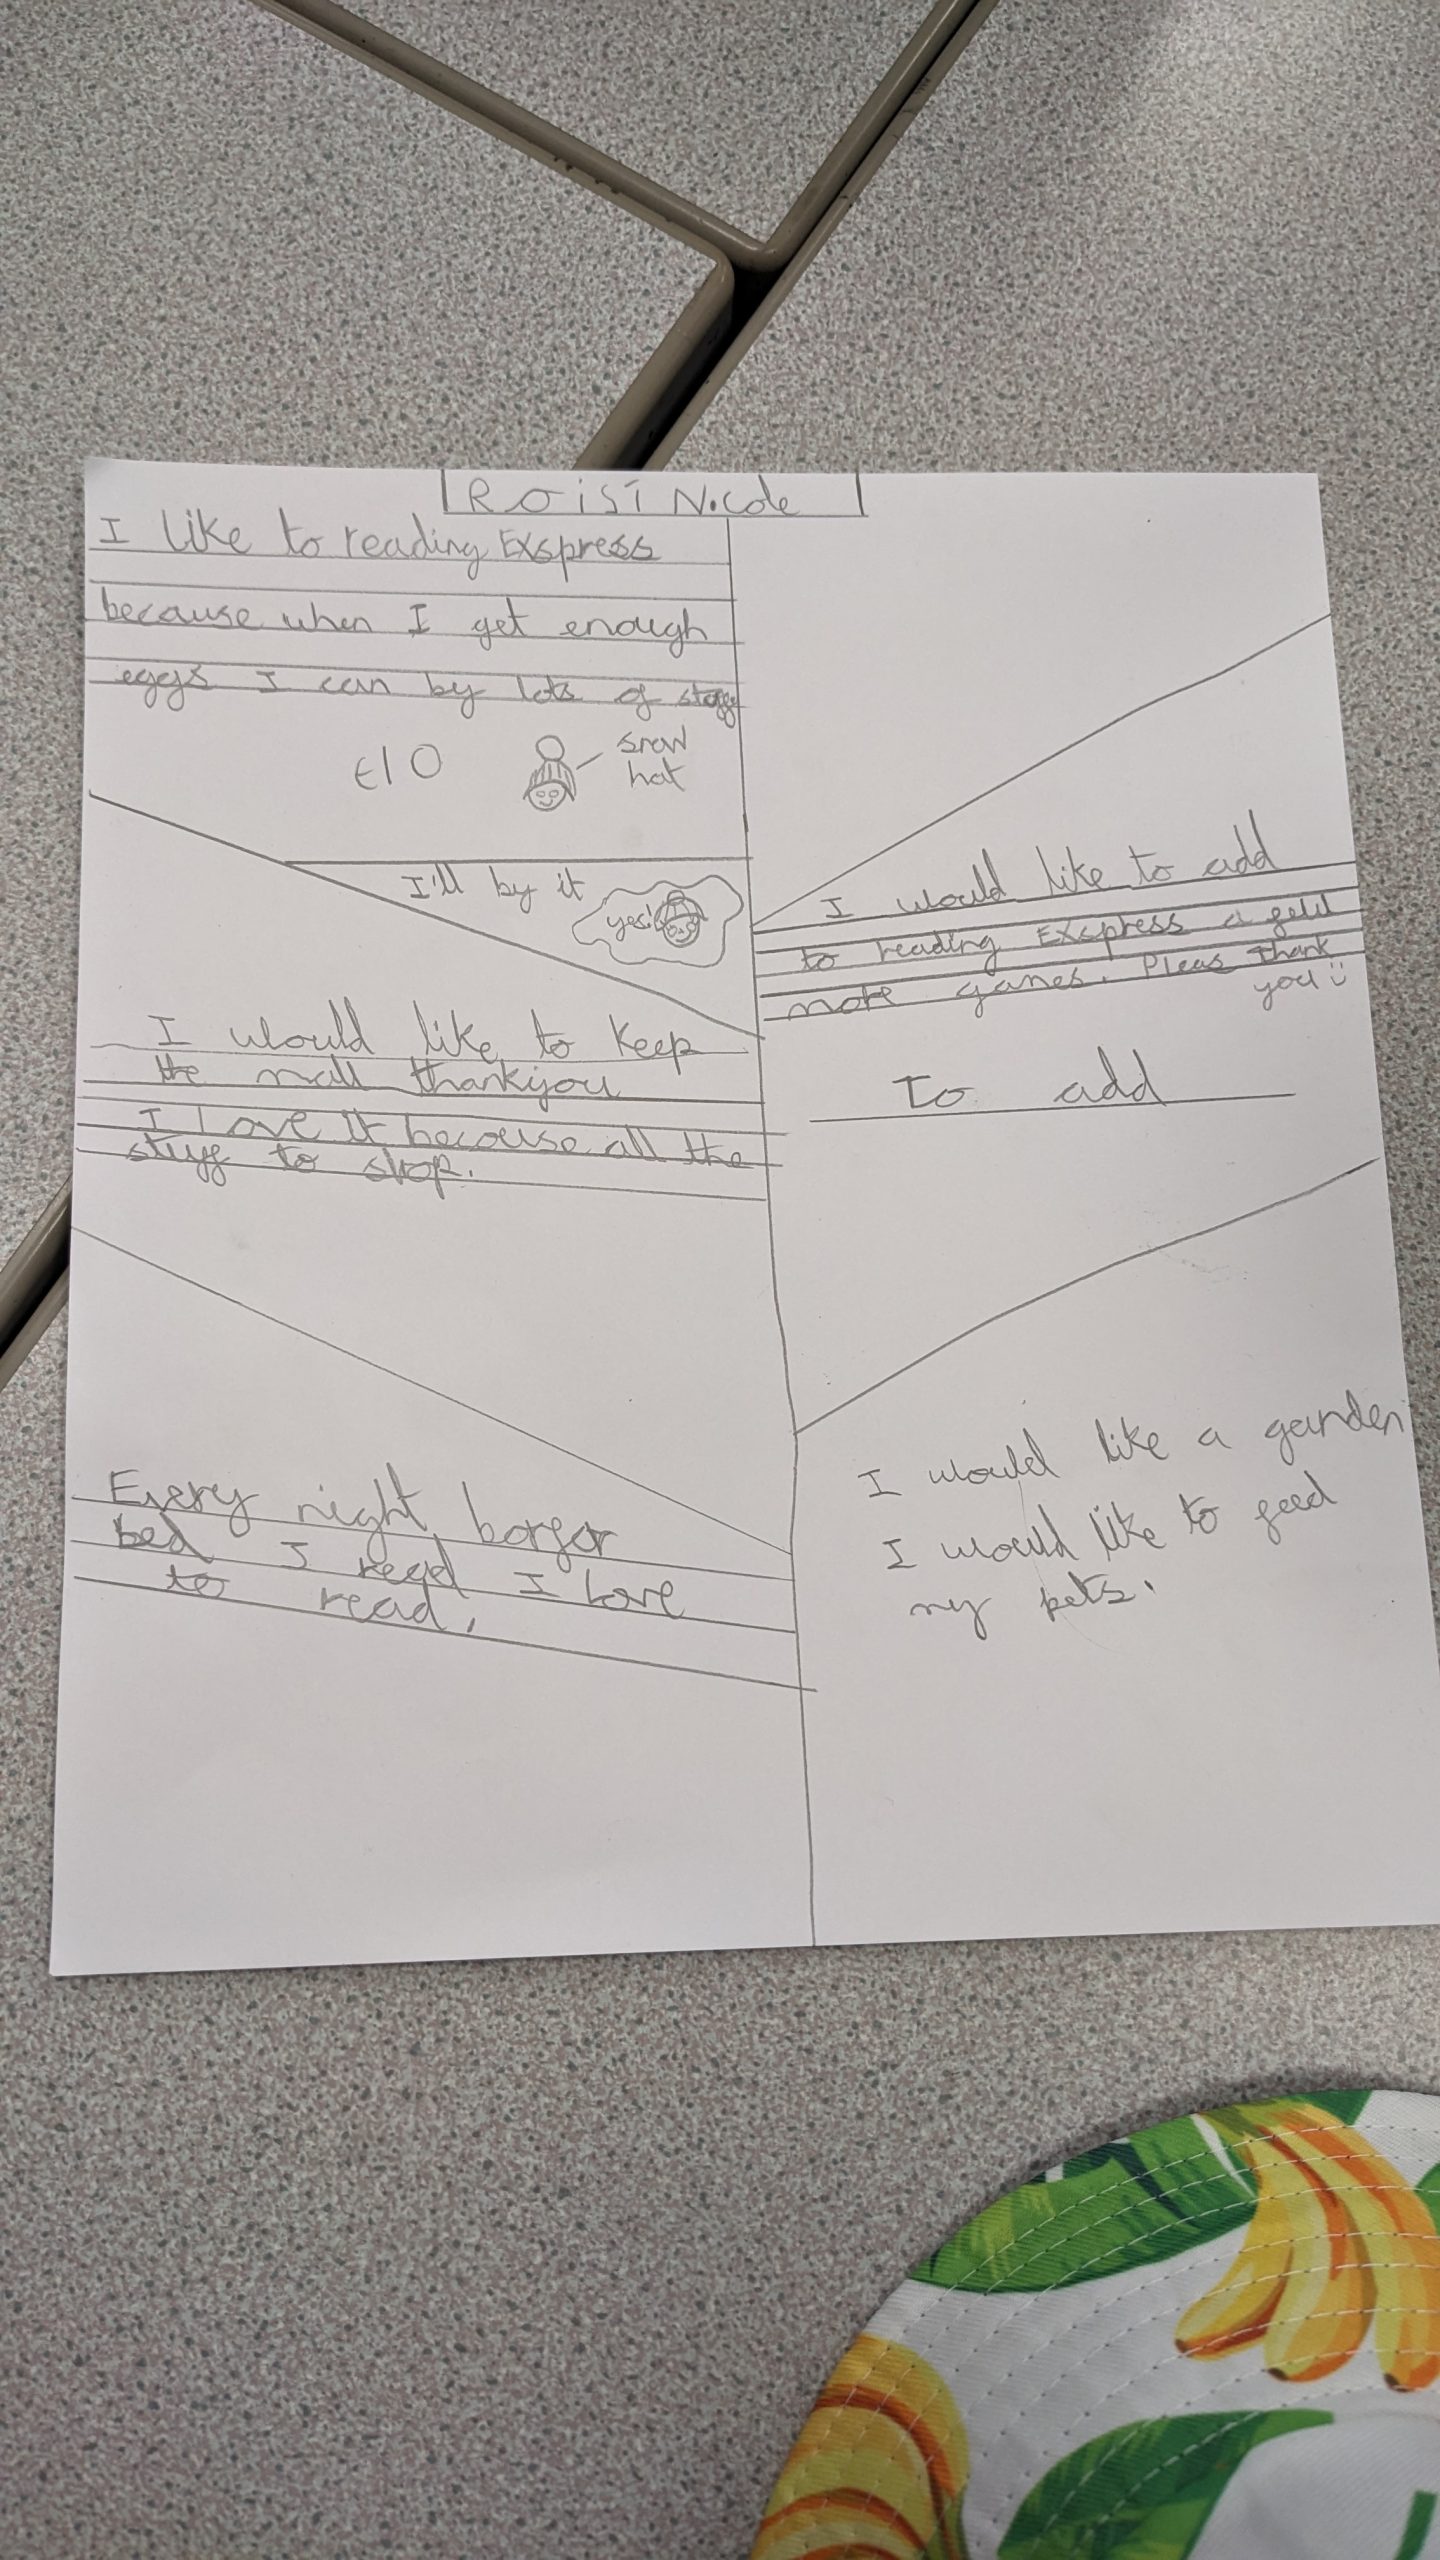 ROiSi Nicole
I like to reading EXspress
because when I get enough
eggs I can by lots of stuff
€10
snow
hat
I'll by it
yes!
I would like to keep
the mall thankyou
I Love It becouse all the
stuff to shop.
Every night borfor
bed I read I love
to read,
I would like to add
to reading EXspress a
more games. Pleas thank
you
To add
I would like a garden
I would like to feed
my pets.